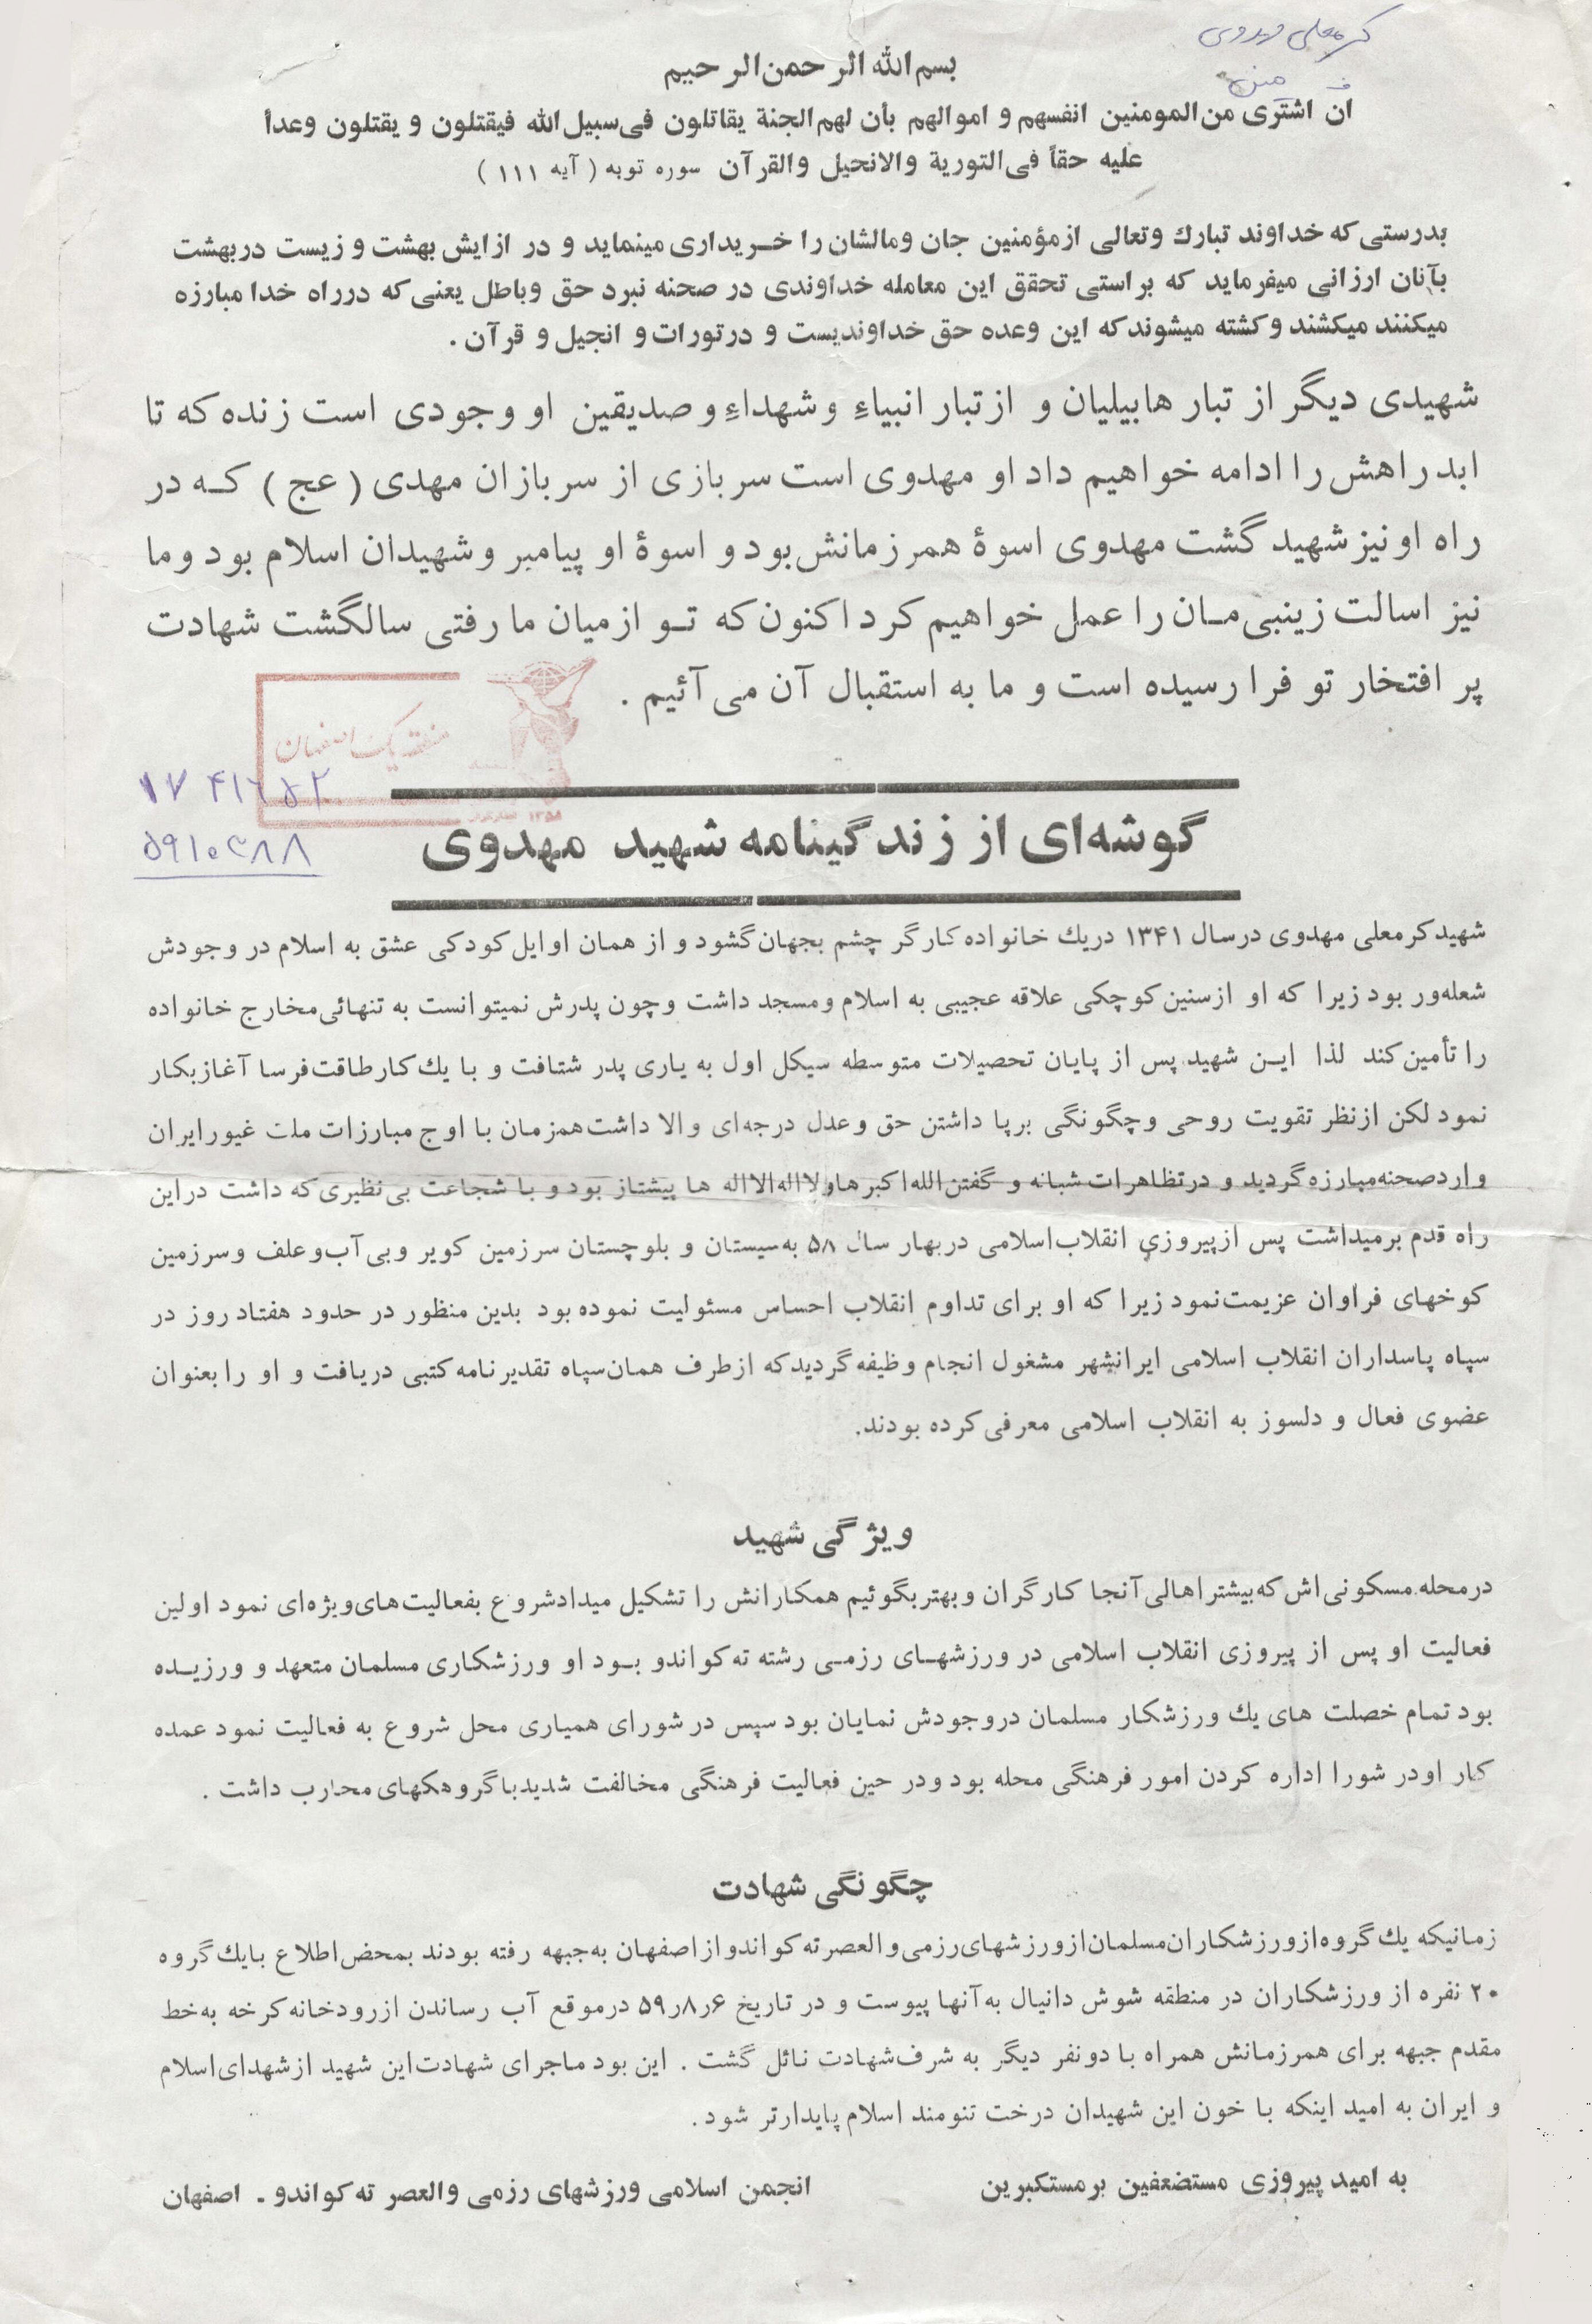 کرمعلی مهدوی
بسم الله الرحمن الرحیم
ان اشتری من المومنین انفسهم و اموالهم بأن لهم الجنة یقاتلون فی سبیل الله فیقتلون و یقتلون وعداً
علیه حقاً فی التوریة والانحیل والقرآن سوره توبه ( آیه ۱۱۱ )
بدرستی که خداوند تبارک وتعالی ازمؤمنین جان ومالشان را خریداری مینماید و در ازایش بهشت و زیست دربهشت
بآنان ارزانی میفرماید که براستی تحقق این معامله خداوندی در صحنه نبرد حق وباطل یعنی که درراه خدا مبارزه
میکنند میکشند وکشته میشوند که این وعده حق خداوندیست و درتورات و انجیل و قرآن .
شهیدی دیگر از تبار هابیلیان و ازتبار انبیاءِ وشهداءِ و صدیقین او وجودی است زنده که تا
ابد راهش را ادامه خواهیم داد او مهدوی است سربازی از سربازان مهدی ( عج ) که در
راه او نیز شهید گشت مهدوی اسوهٔ همرزمانش بود و اسوهٔ او پیامبر وشهیدان اسلام بود وما
نیز اسالت زینبی مان را عمل خواهیم کرد اکنون که تو ازمیان ما رفتی سالگشت شهادت
پر افتخار تو فرا رسیده است و ما به استقبال آن می آئیم .
منطقه یک اصفهان
۱۷ ۴۱۶۵۲
۵۹۱۰۳۸۸
۱۳۵۸
گوشه‌ای از زندگینامه شهید مهدوی
شهیدکرمعلی مهدوی درسال ۱۳۴۱ دریک خانواده کارگر چشم بجهان گشود و از همان اوایل کودکی عشق به اسلام در وجودش
شعله‌ور بود زیرا که او ازسنین کوچکی علاقه عجیبی به اسلام ومسجد داشت وچون پدرش نمیتوانست به تنهائی مخارج خانواده
را تأمین کند لذا این شهید پس از پایان تحصیلات متوسطه سیکل اول به یاری پدر شتافت و با یک کارطاقت فرسا آغازبکار
نمود لکن ازنظر تقویت روحی وچگونگی برپا داشتن حق وعدل درجه‌ای والا داشت همزمان با اوج مبارزات ملت غیورایران
واردصحنه مبارزه گردید و درتظاهرات شبانه و گفتن الله اکبرها و لااله الااله ها پیشتاز بود و با شجاعت بی نظیری که داشت دراین
راه قدم برمیداشت پس ازپیروزی انقلاب اسلامی دربهار سال ۵۸ به سیستان و بلوچستان سرزمین کویر وبی آب وعلف وسرزمین
کوخهای فراوان عزیمت نمود زیرا که او برای تداوم انقلاب احساس مسئولیت نموده بود بدین منظور در حدود هفتاد روز در
سپاه پاسداران انقلاب اسلامی ایرانشهر مشغول انجام وظیفه گردید که ازطرف همان سپاه تقدیرنامه کتبی دریافت و او را بعنوان
عضوی فعال و دلسوز به انقلاب اسلامی معرفی کرده بودند.
ویژگی شهید
درمحله مسکونی اش که بیشتر اهالی آنجا کارگران وبهتر بگوئیم همکارانش را تشکیل میداد شروع بفعالیت های ویژه‌ای نمود اولین
فعالیت او پس از پیروزی انقلاب اسلامی در ورزشهای رزمی رشته ته کواندو بود او ورزشکاری مسلمان متعهد و ورزیده
بود تمام خصلت های یک ورزشکار مسلمان دروجودش نمایان بود سپس در شورای همیاری محل شروع به فعالیت نمود عمده
کار اودر شورا اداره کردن امور فرهنگی محله بود ودر حین فعالیت فرهنگی مخالفت شدید باگروهکهای محارب داشت .
چگونگی شهادت
زمانیکه یک گروه ازورزشکاران مسلمان ازورزشهای رزمی والعصر ته کواندو از اصفهان به جبهه رفته بودند بمحض اطلاع بایک گروه
۲۰ نفره از ورزشکاران در منطقه شوش دانیال به آنها پیوست و در تاریخ ۵۹ر۸ر۶ درموقع آب رساندن ازرودخانه کرخه به خط
مقدم جبهه برای همرزمانش همراه با دونفر دیگر به شرف شهادت نائل گشت . این بود ماجرای شهادت این شهید ازشهدای اسلام
و ایران به امید اینکه با خون این شهیدان درخت تنومند اسلام پایدارتر شود .
به امید پیروزی مستضعفین برمستکبرین
انجمن اسلامی ورزشهای رزمی والعصر ته کواندو ـ اصفهان